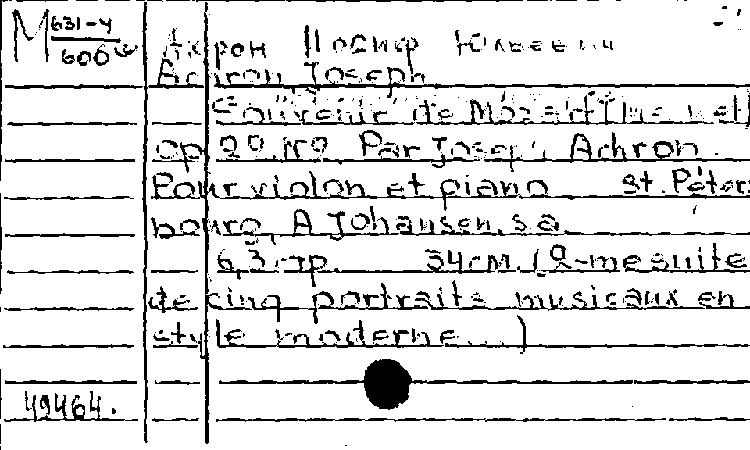 M 631-4
606
Ахрон Иосиф Юльевич
Achron, Joseph.
Souvenir de Mozart
op 20 №2. Par Joseph Achron.
Pour violon et piano St. Péters
bourg, A Johansen, s.a.
6,3 стр. 34 см. (2-me suite
de cinq portraits musicaux en
style moderne...)
49464.